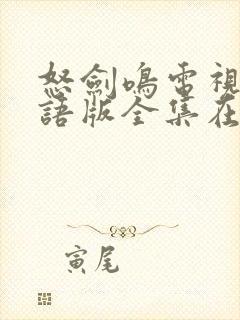 怒劍鳴電視
語版全集在
寅尾